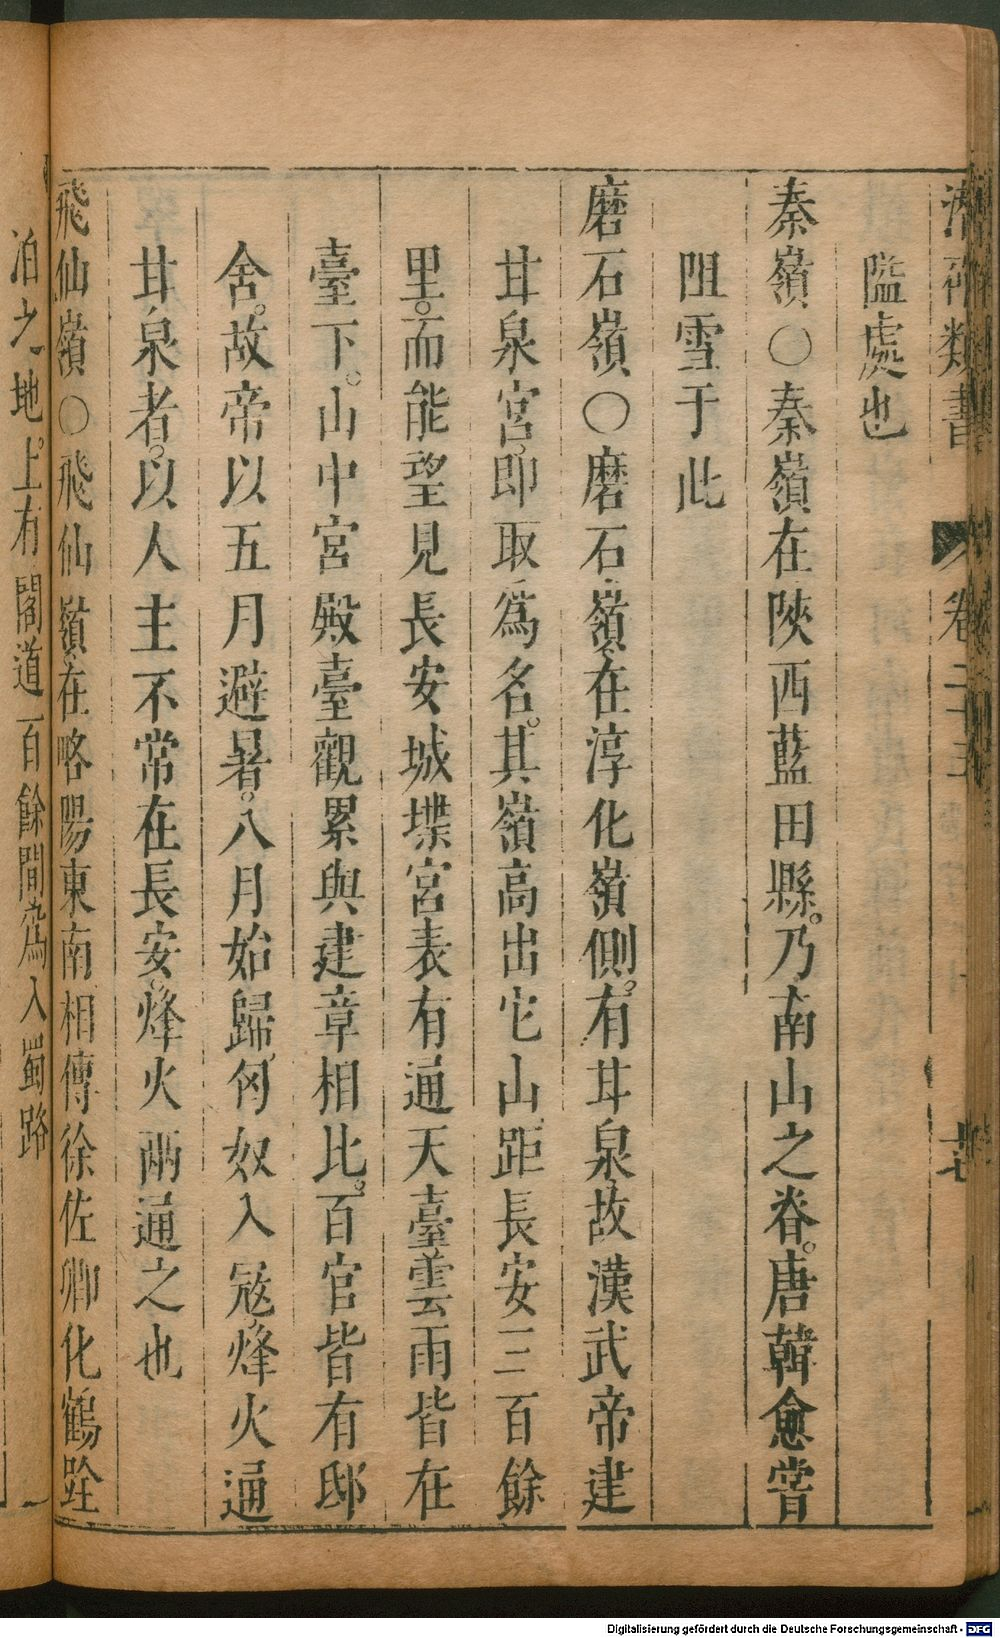 潛確類書 卷二十五 十七
隘處也
秦嶺○秦嶺在陝西藍田縣。乃南山之脊。唐韓愈嘗
阻雪于此
磨石嶺○磨石嶺、在淳化嶺側。有甘泉、故漢武帝建
甘泉宮、卽取爲名。其嶺高出它山、距長安三百餘
里。而能望見長安城堞宮表有通天臺雲雨皆在
臺下。山中宮殿臺觀累與建章相比。百官皆有邸
舍。故帝以五月避暑。八月始歸、匈奴入寇、烽火通
甘泉者。以人主不常在長安。烽火兩通之也
飛仙嶺○飛仙嶺、在略陽東南相傳徐佐卿化鶴跧
泊之地。上有閣道百餘間爲入蜀路
Digitalisierung gefördert durch die Deutsche Forschungsgemeinschaft - DFG